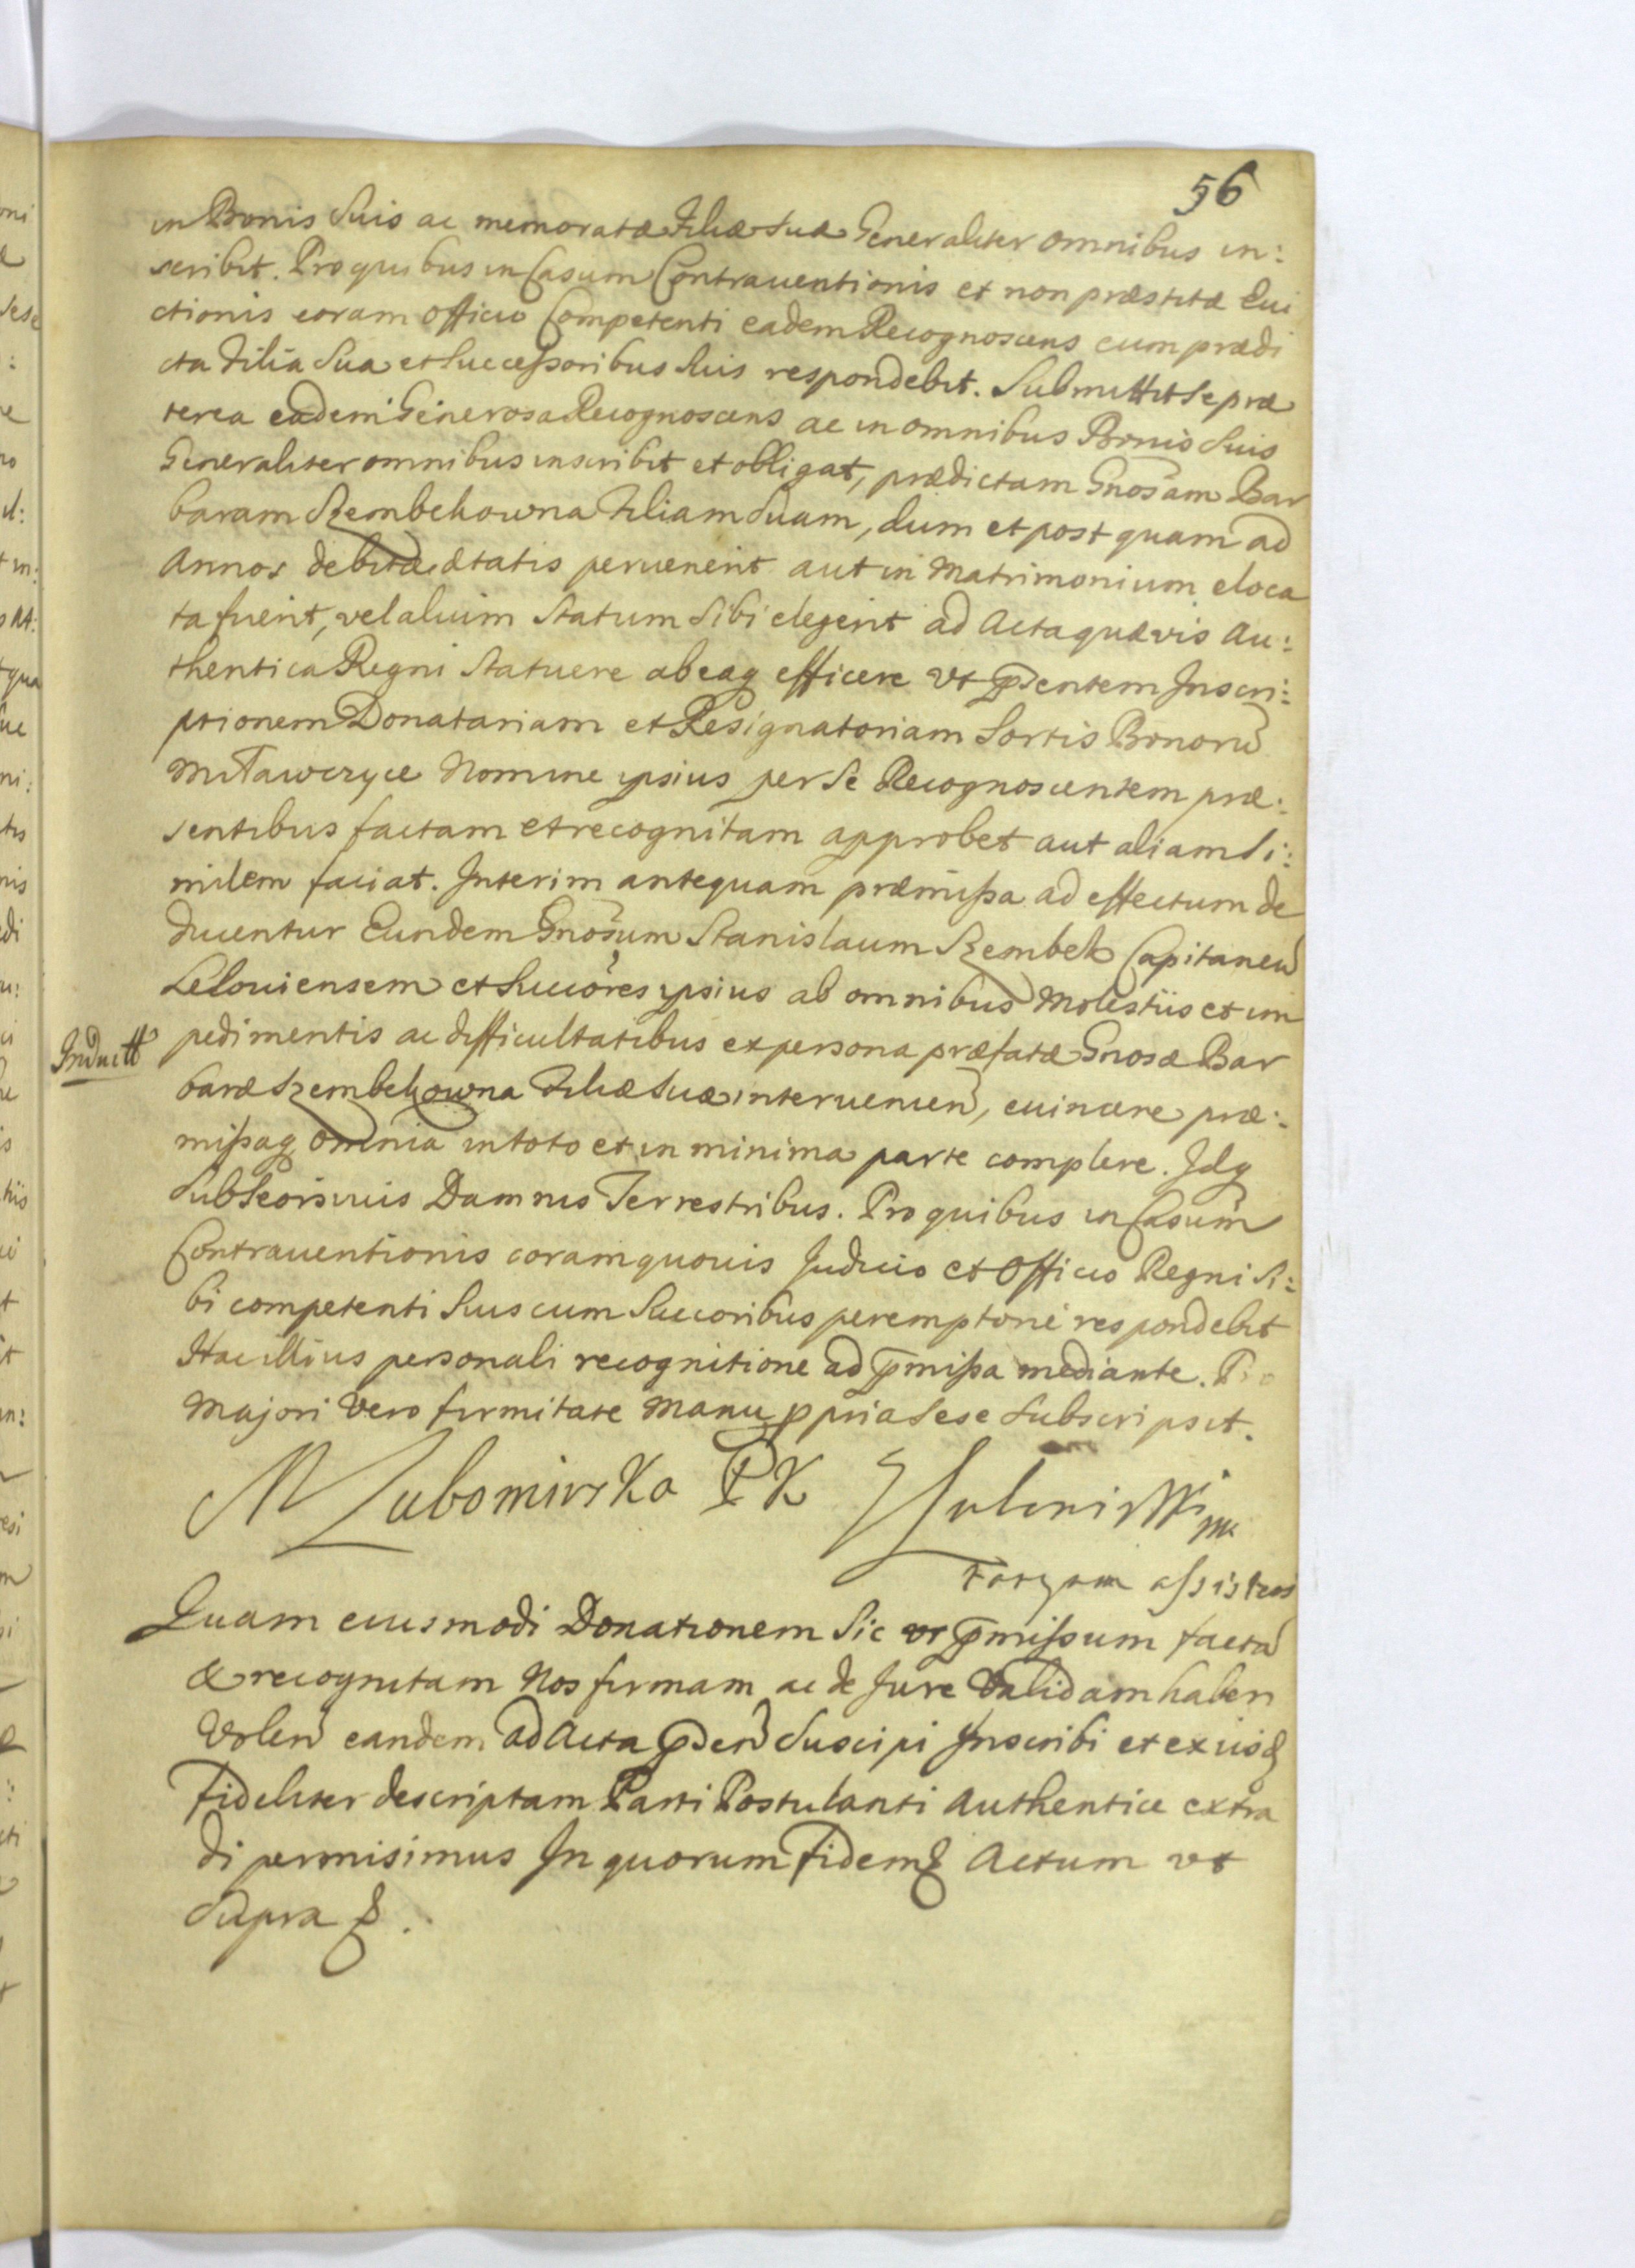 56
in Bonis Suis ac memoratæ Filiæ Suæ Generaliter omnibus in:
scribit. Pro quibus in Casum Contrauentionis et non præstitæ Eui
ctionis coram officio Competenti eadem Recognoscens cum prædi
cta Filia Sua et Successoribus Suis respondebit. Submittit Se præ
terea eadem Generosa Recognoscens ac in omnibus Bonis Suis
Generaliter omnibus inscribit et obligat, prædictam Gnosam Bar
baram Szembekowna Filiam Suam, dum et post quam ad
Annos debitæ ætatis peruenerit aut in Matrimonium eloca
ta fuerit, vel alium Statum Sibi elegerit ad Acta quævis Au:
thentica Regni Statuere ab eaq efficere Vt pñtem Inscri:
ptionem Donatariam et Resignatoriam Sortis Bonorũ
Mitawczyce Nomine ipsius per Se Recognoscentem præ:
sentibus factam et recognitam approbet aut aliam Si:
milem faciat. Interim antequam præmissa ad effectum de
ducentur Eundem Gnosum Stanislaum Szembek Capitaneũ
Leloviensem et Succores ipsius ab omnibus Molestiis et im
pedimentis ac difficultatibus ex persona præfatæ Gnosæ Bar
Inductt
baræ Szembekowna Filiæ Suæ interuenien, euincere præ:
missaq omnia in toto et in minima parte complere. Idq
Sub Seorsiuis Damnis Terrestribus. Pro quibus in Casum
Contrauentionis coram quouis Judicio et Officio Regni Si:
bi competenti Suis cum Succoribus peremptorie respondebit
Hac illius personali recognitione ad pmissa mediante. Pro
Majori Vero firmitate Manu ppria Sese Subscripsit.
M Lubomirska PK
assistens
Quam eiusmodi Donationem Sic vt pmissum factã
& recognitam Nos firmam ac de Jure Validam haberi
Volen eandem ad Acta pnden Suscipi Inscribi et ex iisd
Fideliter descriptam Parti Postulanti Authentice extra
di permisimus In quorum Fidem & Actum vt
Supra &.